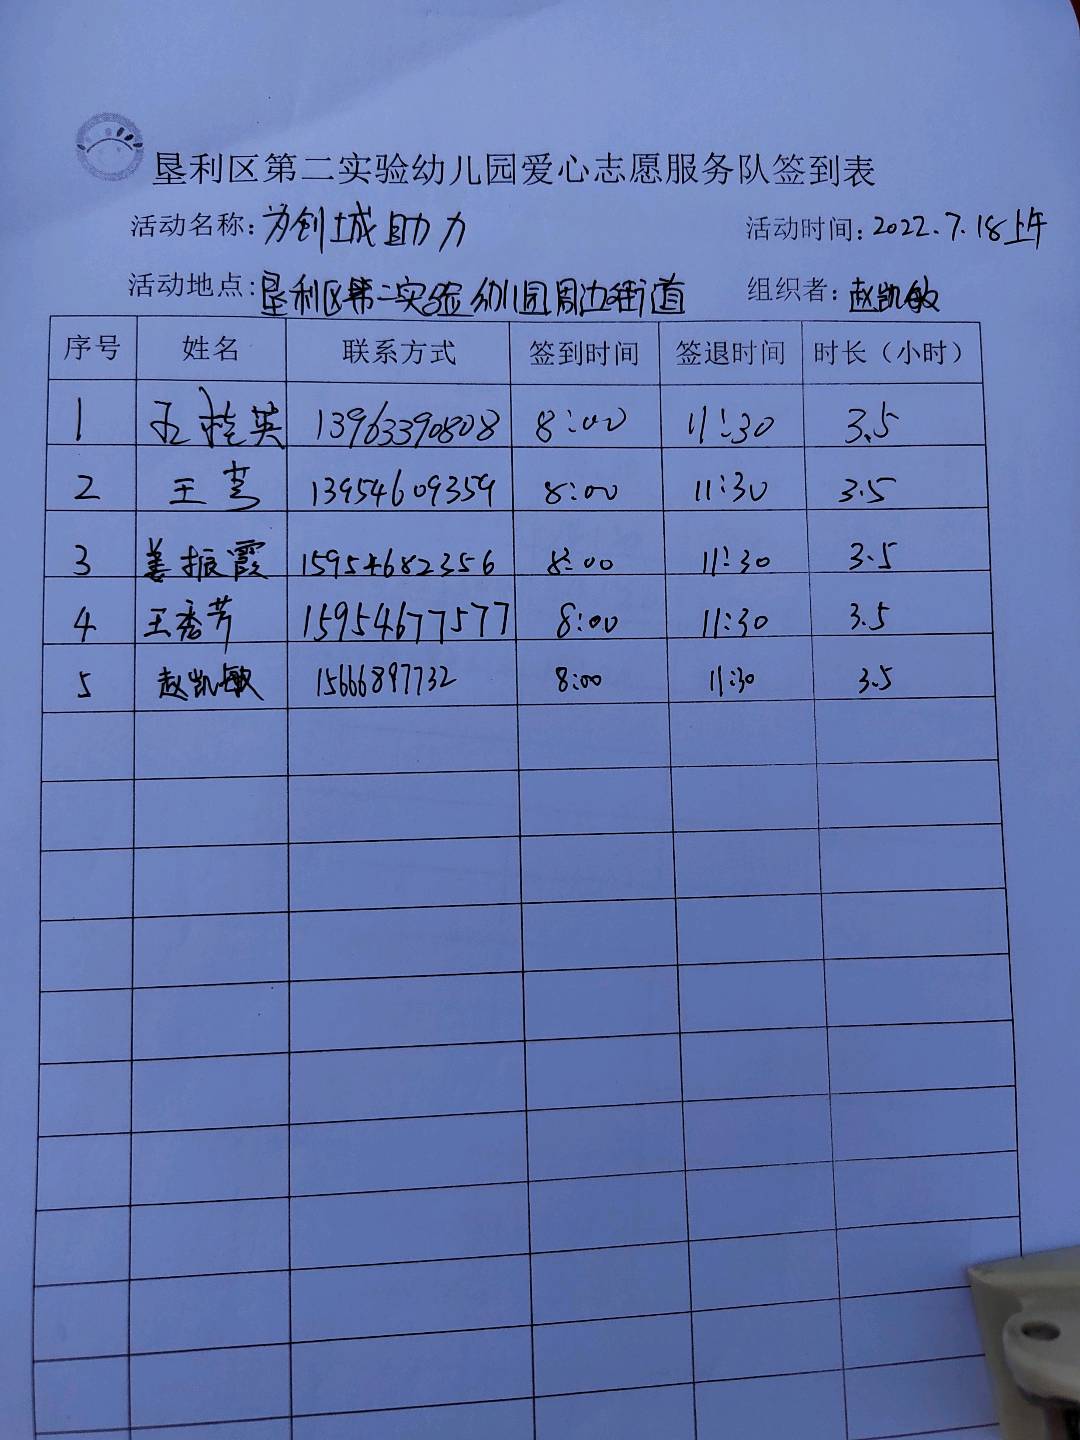 垦利区第二实验幼儿园爱心志愿服务队签到表
活动名称：为创城助力 活动时间：2022.7.18上午
活动地点：垦利区第二实验幼儿园周边街道 组织者：赵凯敏
序号 姓名 联系方式 签到时间 签退时间 时长（小时）
1 桂英 13963390808 8:00 11:30 3.5
2 王 13954609359 8:00 11:30 3.5
3 姜振霞 15954682356 8:00 11:30 3.5
4 王秀芳 15954677577 8:00 11:30 3.5
5 赵凯敏 15666897732 8:00 11:30 3.5